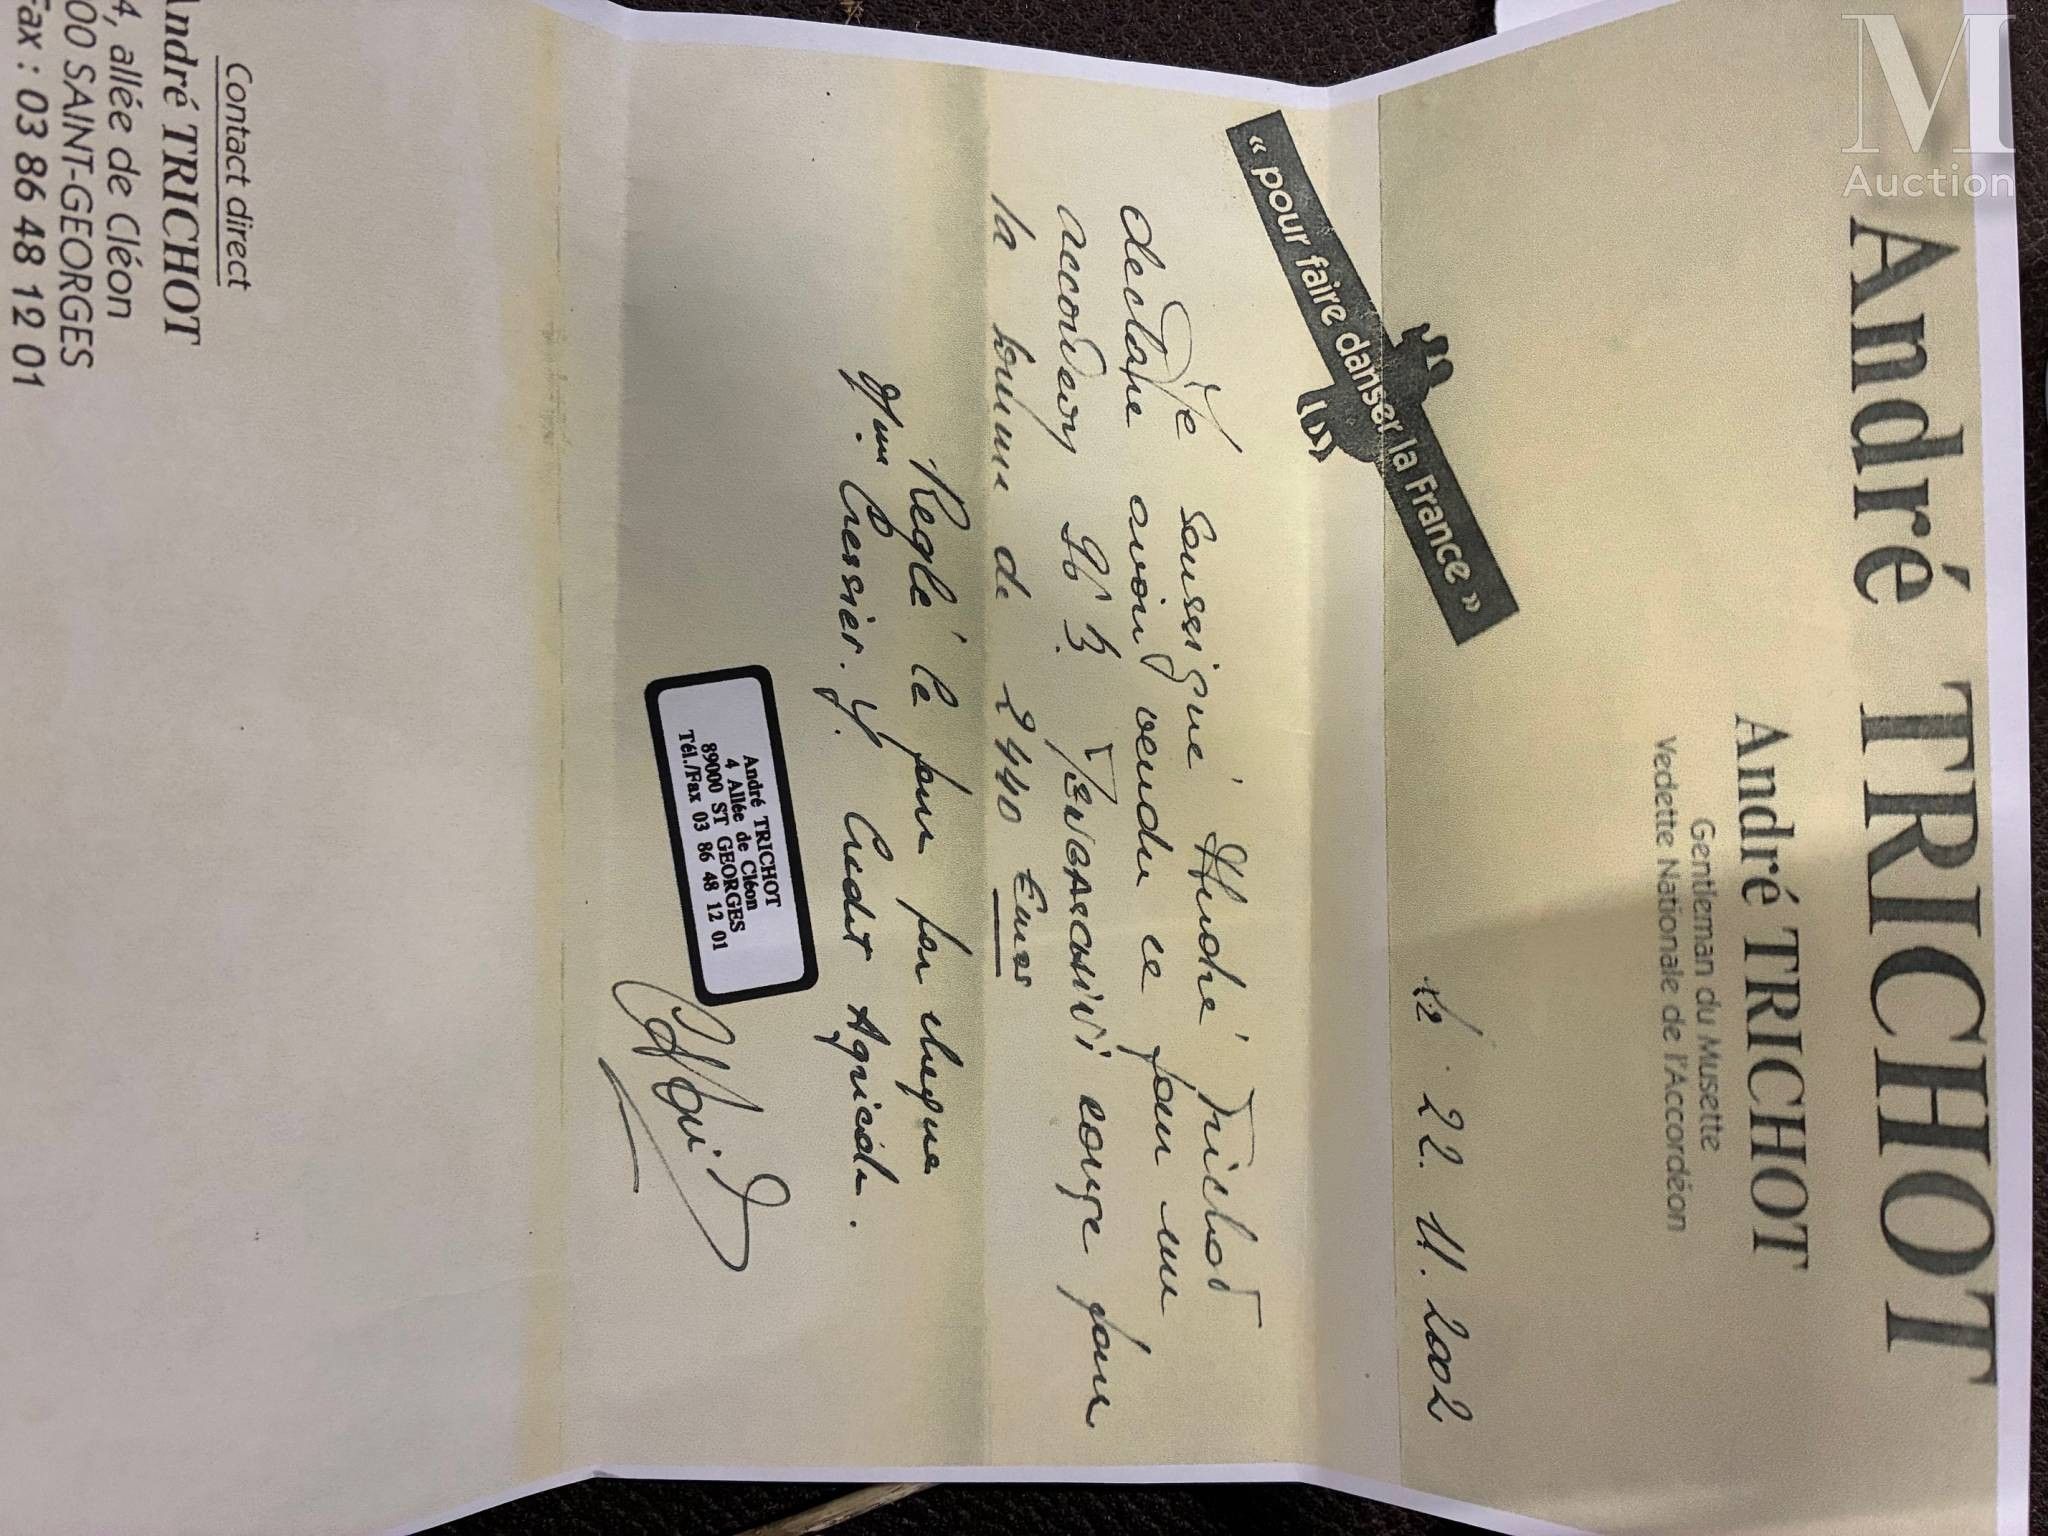 M
Auction
André TRICHOT
André TRICHOT
Gentleman du Musette
Vedette Nationale de l'Accordéon
22. 11. 2002
« pour faire danser la France »
Je soussigné André Trichot
declare avoir vendu ce jour un
accordeon 96 B. rouge pour
la somme de 2440 Euros
Reglé le jour par cheque
Mme Cressier. Y. Credit Agricole.
André TRICHOT
4 Allée de Cléon
89000 ST GEORGES
Tél./Fax 03 86 48 12 01
Contact direct
André TRICHOT
4, allée de Cléon
000 SAINT-GEORGES
Fax : 03 86 48 12 01